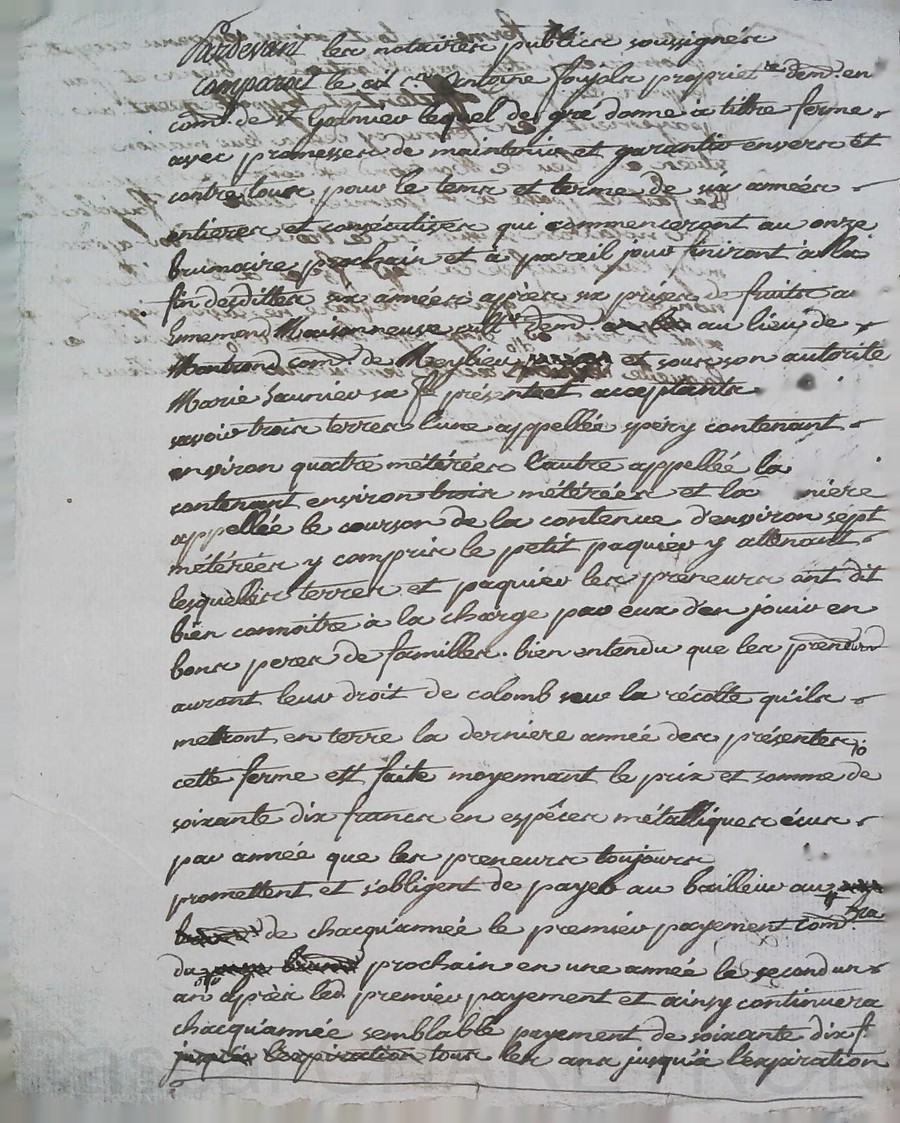 Pardevant les notaires publics soussignés
comparait le cit. Antoine foujols propriet.re dem.t en
com.e de St Galmier lequel de gré donne à tittre ferme
avec promesses de maintenir et garantir envers et
contre tous pour le tems et terme de six années
entieres et consécutives qui commenceront au onze
brumaire prochain et à pareil jour finiront à la
fin desdittes six années apprès six prises de fruits a
Ennemond Maisonneuve cult.r dem.t au lieu de
Montrond com.e de Meylieu et sous son autorité
Marie Saunier sa f.e présents et acceptants
savoir trois terres l'une appellée spéry contenant
environ quatre métérées l'autre appellée la
contenant environ trois métérées et la niere
appellée le courson de la contenue d'environ sept
métérées y compris le petit paquier y attenant
lesquelles terres et paquier les preneurs ont dit
bien connoitre à la charge par eux d'en jouir en
bons peres de familles. bien entendu que les preneurs
auront leur droit de colomb sur la récolte qu'ils
mettront en terre la derniere année des présentes
cette ferme est faite moyennant le prix et somme de
soixante dix francs en espêces métalliques écus
par année que les preneurs toujours
promettent et s'obligent de payer au bailleur au
de chacqu'année le premier payement com.era
du prochain en une année le second un
an après led. premier payement et ainsy continuera
chacqu'année semblable payement de soixante dix f.
l'expiration tous les ans jusqu'à l'expiration